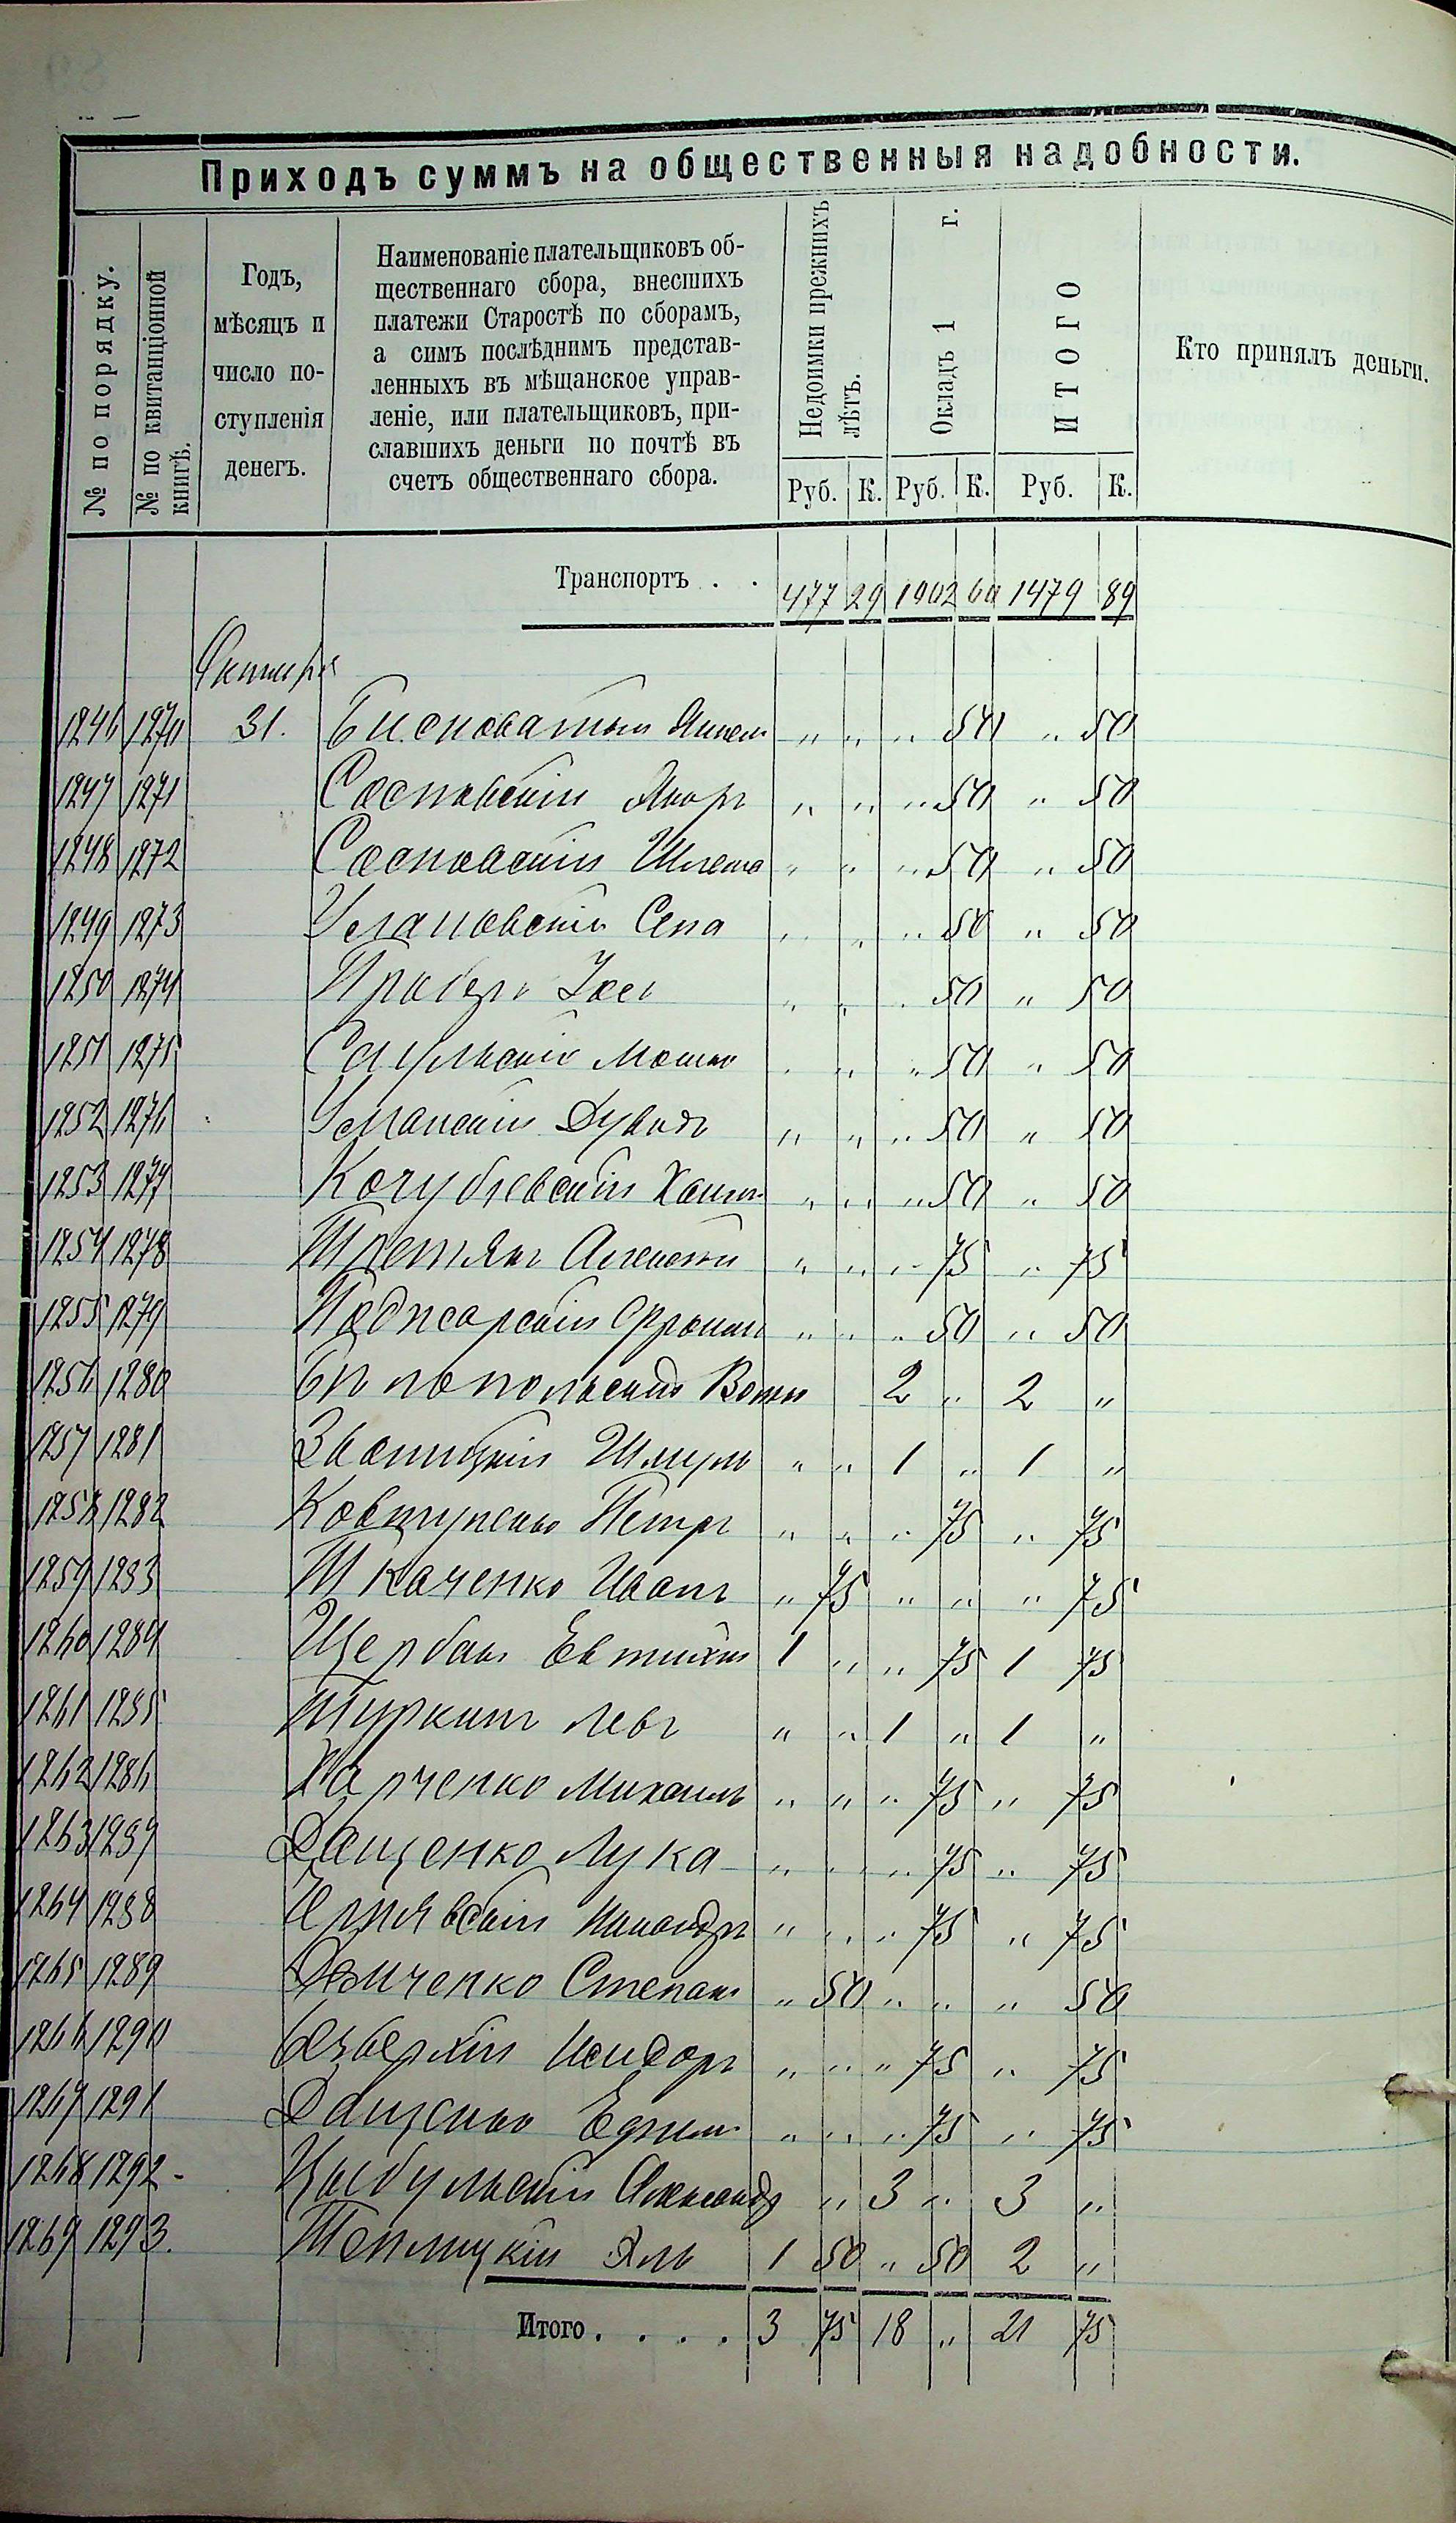 Приходъ суммъ на общественныя надобности.
№ по порядку.
№ по квитанціонной книгѣ.
Годъ, мѣсяцъ и число поступленія денегъ.
Наименованіе плательщиковъ об-
щественнаго сбора, внесшихъ
платежи Старостѣ по сборамъ,
а симъ послѣднимъ представ-
ленныхъ въ мѣщанское управ-
леніе, или плательщиковъ, при-
славшихъ деньги по почтѣ въ
счетъ общественнаго сбора.
Недоимки прежнихъ лѣтъ.
Окладъ 1 г.
ИТОГО
Кто принялъ деньги.
Руб. К. Руб. К. Руб. К.
Транспортъ . . 477 29 1002 60 1479 89
Октября
1246 1270 31. „ „ „ 50 „ 50
1247 1271 Сосновскій „ „ „ 50 „ 50
1248 1272 Сосновскій Шлема „ „ „ 50 „ 50
1249 1273 „ „ „ 50 „ 50
1250 1274 „ „ „ 50 „ 50
1251 1275 Мошко „ „ „ 50 „ 50
1252 1276 Уманскій Дувидъ „ „ „ 50 „ 50
1253 1277 Кочубіевскій Хаимъ „ „ „ 50 „ 50
1254 1278 Третякъ Алексѣй „ „ „ 75 „ 75
1255 1279 Поджарскій Фроимъ „ „ „ 50 „ 50
1256 1280 Бѣлопольскій 2 „ 2 „
1257 1281 Шмуль „ „ 1 „ 1 „
1258 1282 Ковтуненко Петръ „ „ „ 75 „ 75
1259 1283 Ткаченко Иванъ „ 75 „ „ „ 75
1260 1284 Щербань Евтихій 1 „ „ 75 1 75
1261 1285 Туркинъ Левъ „ „ 1 „ 1 „
1262 1286 Харченко Михаилъ „ „ „ 75 „ 75
1263 1287 Дащенко Лука „ „ „ 75 „ 75
1264 1288 Чернявскій „ „ „ 75 „ 75
1265 1289 Демченко Степанъ „ 50 „ „ „ 50
1266 1290 Безверхій Исидоръ „ „ „ 75 „ 75
1267 1291 Дащенко Ефимъ „ „ „ 75 „ 75
1268 1292 Цыбульскій Александръ „ 3 „ 3 „
1269 1293. Теплицкій Эль 1 50 „ 50 2 „
Итого . . . . 3 75 18 „ 21 75